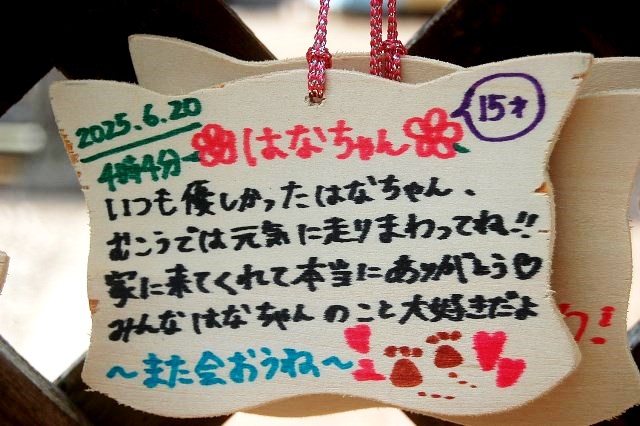 2025.6.20
4時4分
はなちゃん
15才
いつも優しかったはなちゃん、
むこうでは元気に走りまわってね!!
家に来てくれて本当にありがとう♡
みんなはなちゃんのこと大好きだよ
～また会おうね～